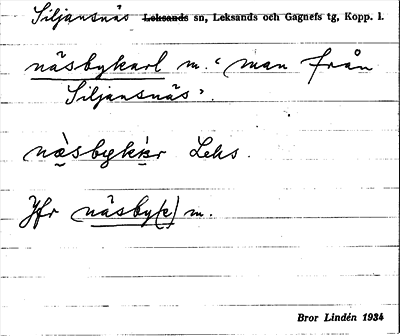 Siljansnäs Leksands sn, Leksands och Gagnefs tg, Kopp. l.
näsbykarl m. "man från
Siljansnäs".
Leks.
Jfr näsby(e) m.
Bror Lindén 1934